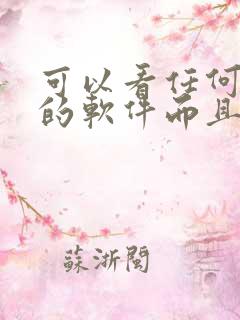 可以看任何
的軟件而且
蘇浙閩